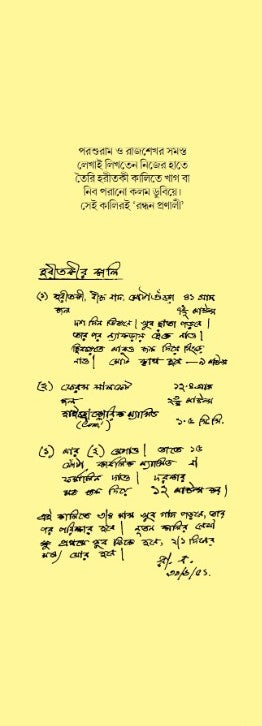 পরশুরাম ও রাজশেখর সমস্ত
লেখাই লিখতেন নিজের হাতে
তৈরি হরীতকী কালিতে খাগ বা
নিব পরানো কলম ডুবিয়ে।
সেই কালিরই ‘রন্ধন প্রণালী’
হরীতকীর কালি
(১) হরীতকী, বীজ বাদ, মোটা গুঁড়া ৪১ গ্রাম
জল ৭½ আউন্স
দশ দিন ভিজবে। খুব ছাতা পড়বে।
তার পর ন্যাকড়ায় ছেঁকে নাও।
আরও জল দিয়ে
নাও। মোট হবে — ৯ আউন্স
(২) ১২.৪ গ্রাম
জল ২½ আউন্স
হাইড্রোক্লোরিক অ্যাসিড
১.৫ সি.সি.
(১) আর (২) মেশাও। তাতে ১৫
ফোঁটা কার্বলিক অ্যাসিড বা
ফর্মালিন দাও। দরকার
মত জল দিয়ে ১২ আউন্স কর।
এই কালিতে ৩/৪ মাস খুব গাদ পড়বে, তার
পর পরিষ্কার হবে। নূতন কালির লেখা
প্রথমে খুব ফিকে হবে, ২/১ দিনের
মধ্যে ঘোর হবে।
রা. ব.